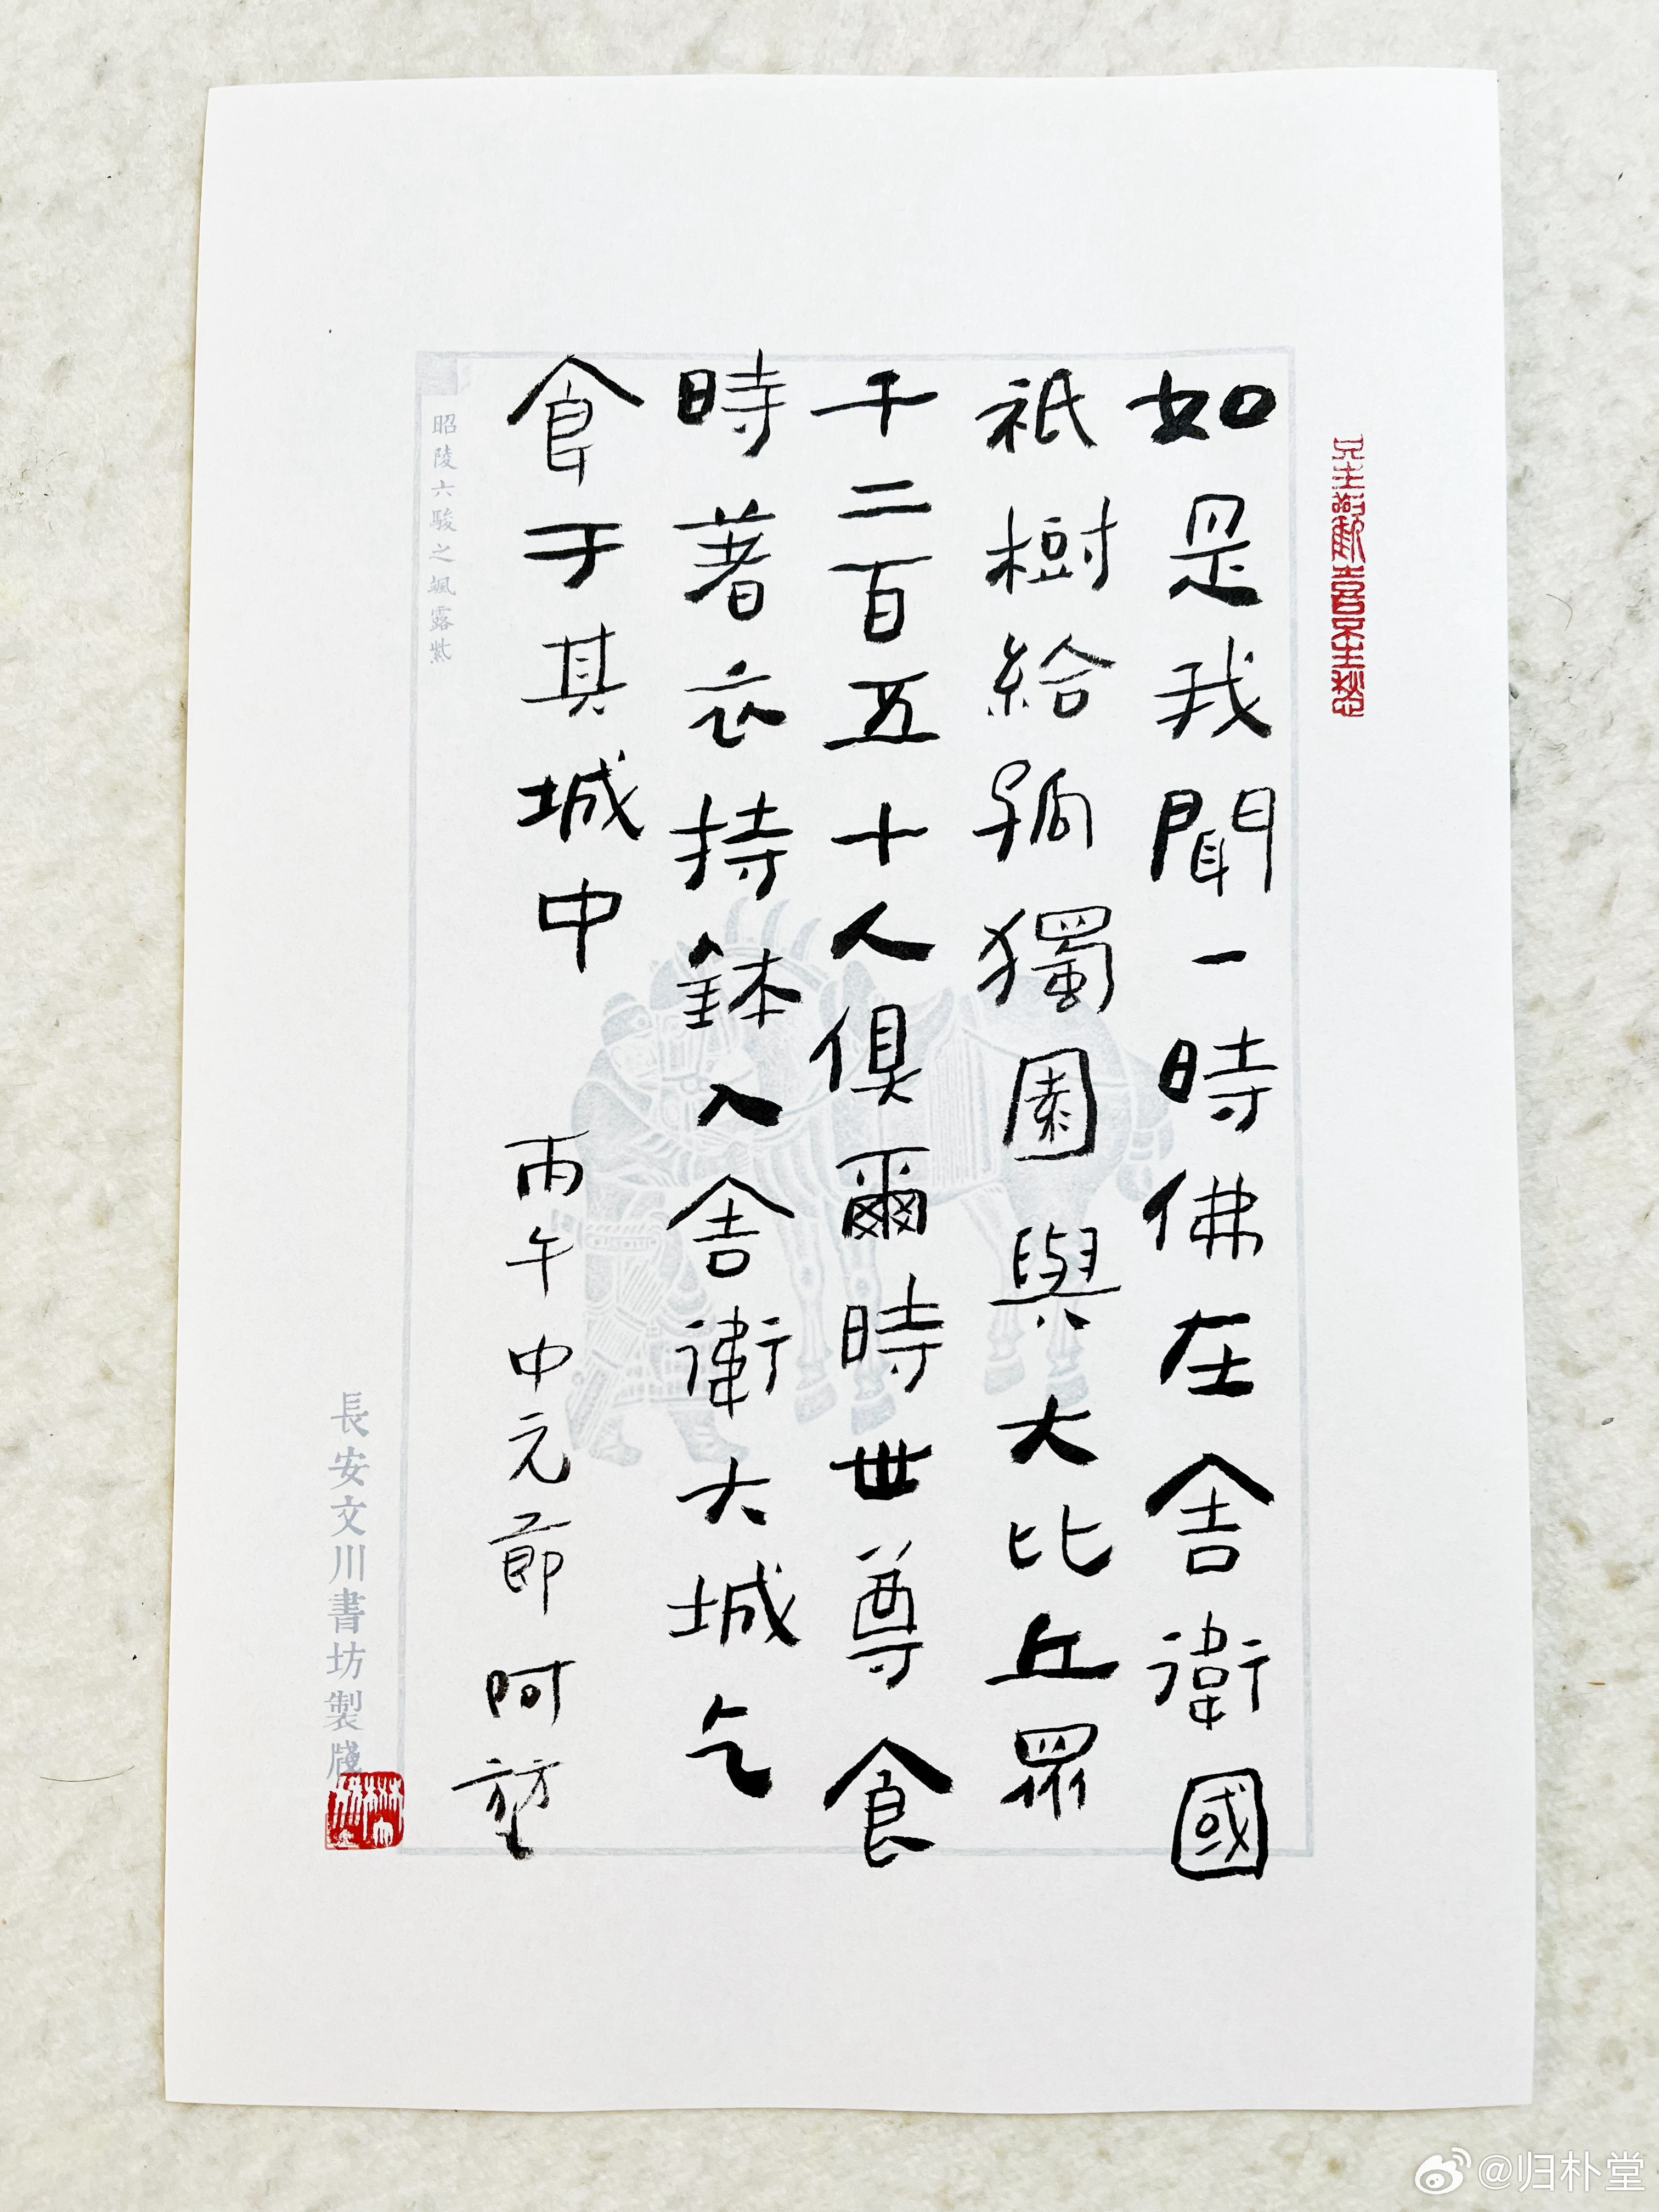 只生歡喜不生愁
如是我聞一時佛在舍衛國
祇樹給孤獨園與大比丘眾
千二百五十人俱爾時世尊食
時著衣持鉢入舍衛大城乞
食于其城中 丙午中元節 阿堃
昭陵六駿之颯露紫
長安文川書坊製牋
@归朴堂